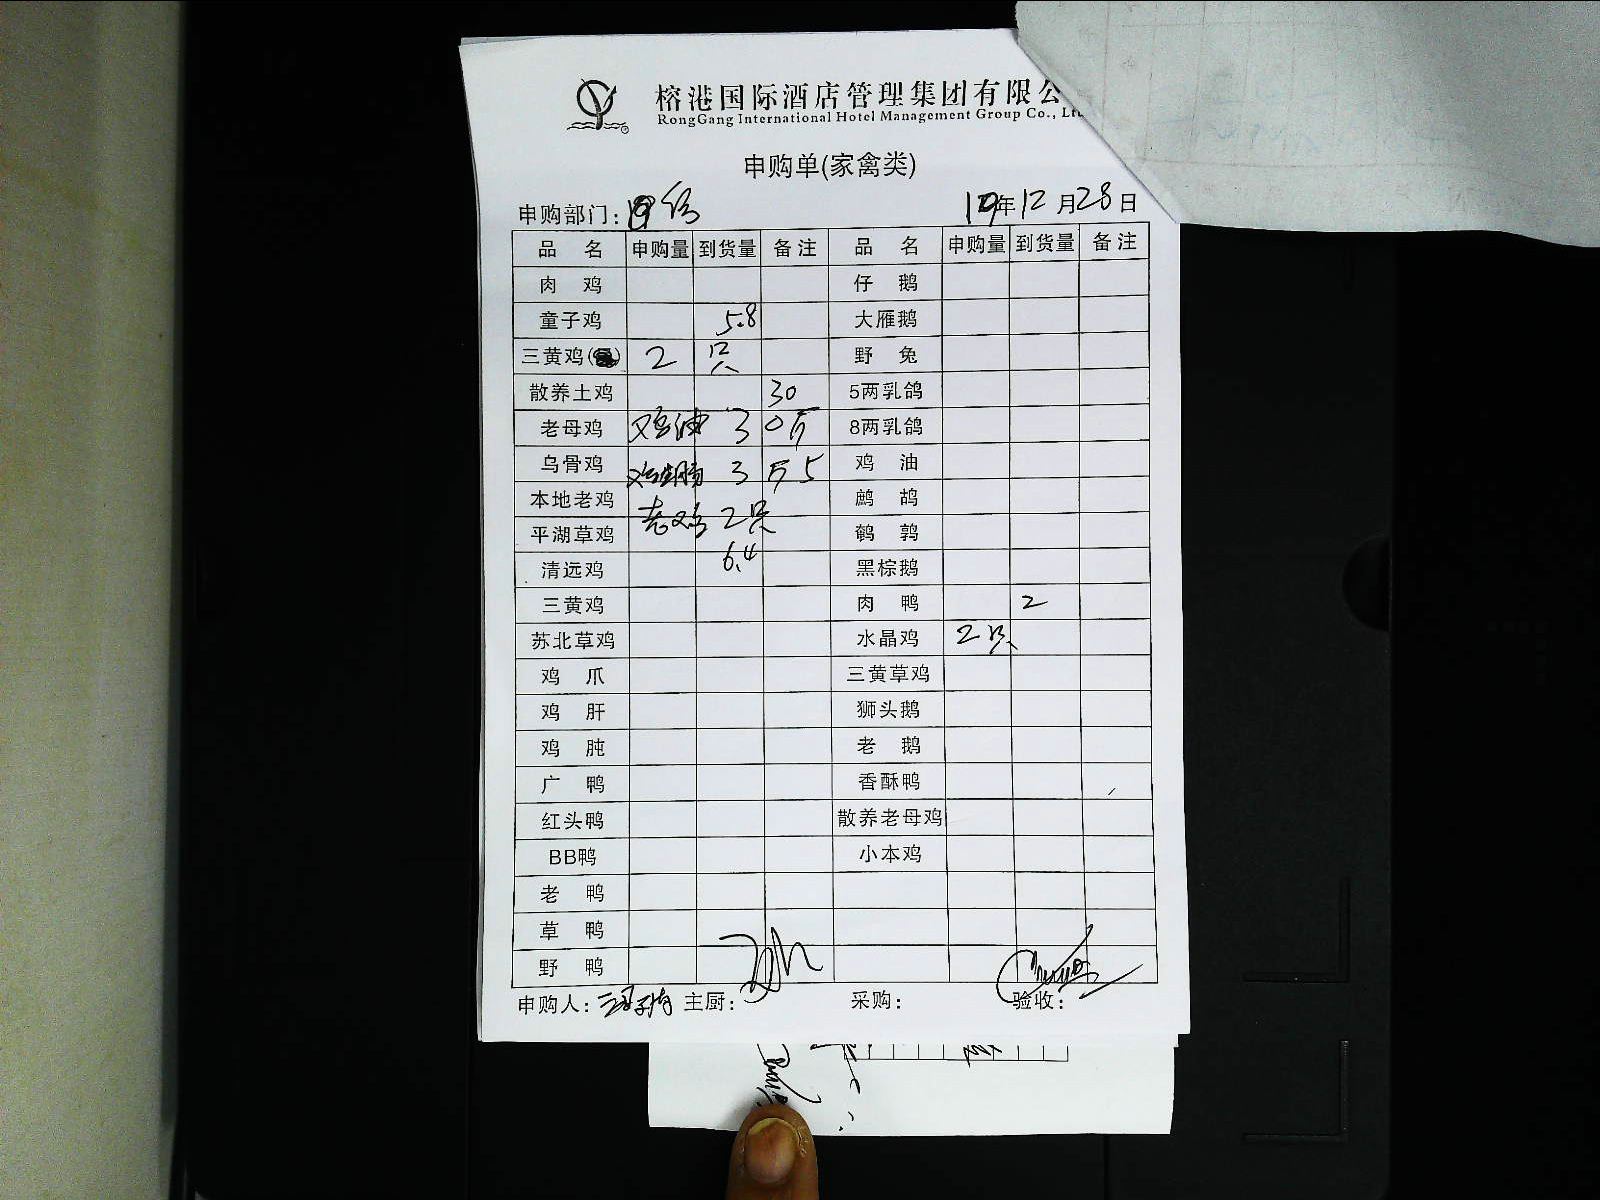 榕港国际酒店管理集团有限公
RongGang International Hotel Management Group Co., Ltd
申购单(家禽类)
申购部门: 19年12月28日
品名 申购量 到货量 备注 品名 申购量 到货量 备注
肉鸡 仔鹅
童子鸡 5.8 大雁鹅
三黄鸡 2 只 野兔
散养土鸡 30 5两乳鸽
老母鸡 鸡油 30斤 8两乳鸽
乌骨鸡 3斤5 鸡油
本地老鸡 老鸡 2只 鹧鸪
平湖草鸡 鹌鹑
清远鸡 6.4 黑棕鹅
三黄鸡 肉鸭 2
苏北草鸡 水晶鸡 2只
鸡爪 三黄草鸡
鸡肝 狮头鹅
鸡肫 老鹅
广鸭 香酥鸭
红头鸭 散养老母鸡
BB鸭 小本鸡
老鸭
草鸭
野鸭
申购人: 主厨: 采购: 验收: